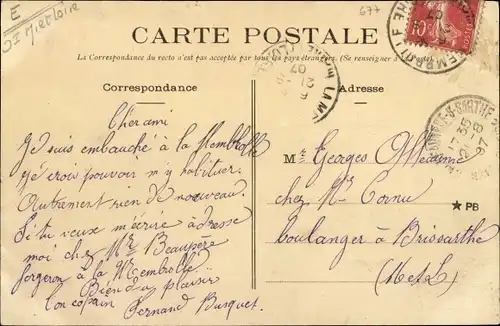 E
Mietloire
677
CARTE POSTALE
La Correspondance du recto n'est pas acceptée par tous les pays étrangers. (Se renseigner à la Poste)
Correspondance
Adresse
Cher ami
Je suis embauché à la Membrolle
je crois pouvoir m'y habituer.
Autrement rien de nouveau.
Si tu veux m'écrire adresse
moi chez Mr Beaupère
forgeron à la Membrolle
Bien du plaisir
ton copain
Fernand Busquet.
Mr Georges
chez Mr Cornu
★ PB
boulanger à Brissarthe
(M et L)
10